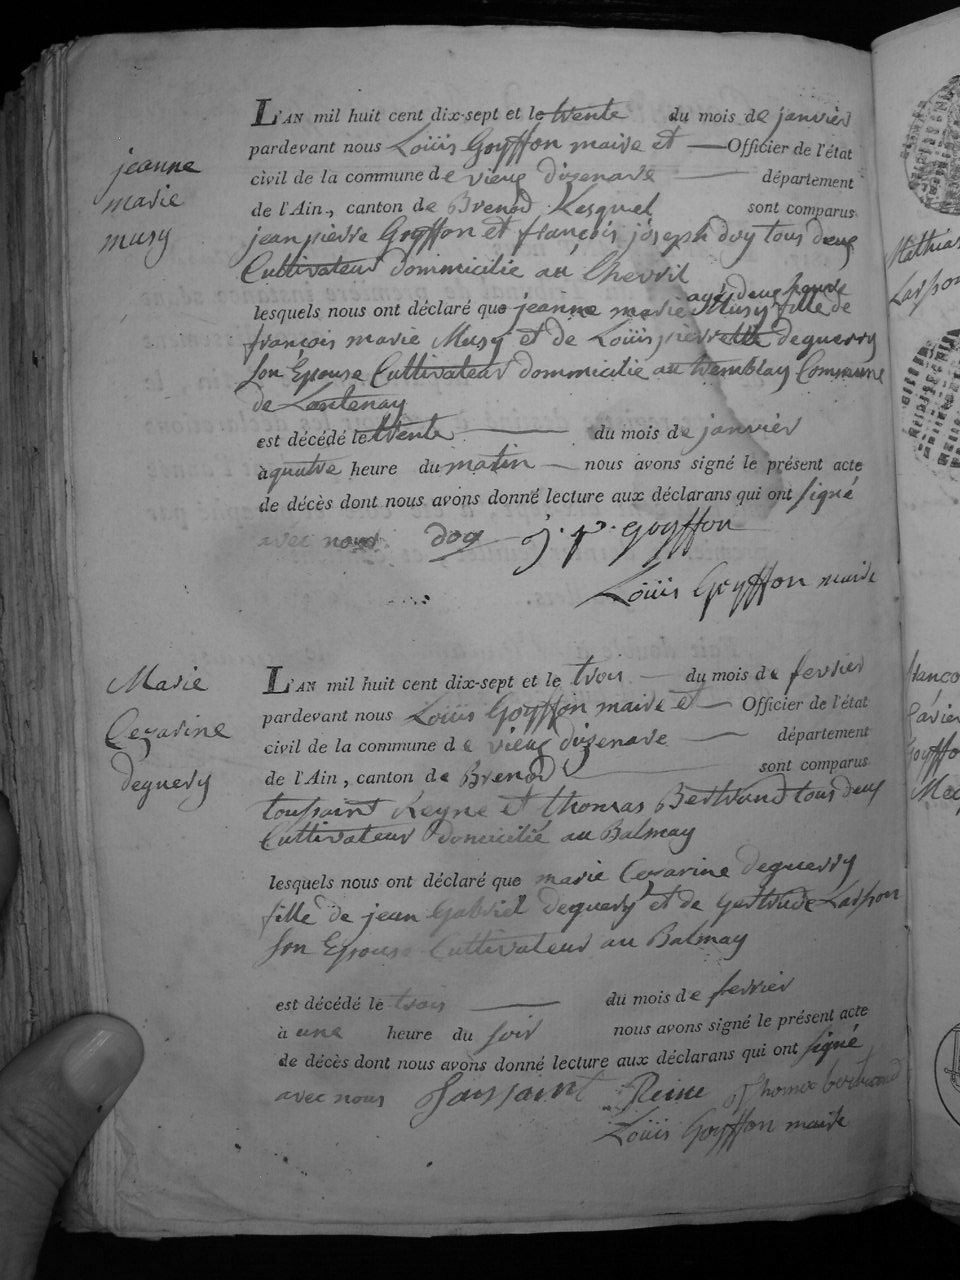 L'AN mil huit cent dix-sept et le trente du mois de janvier
pardevant nous Loüis Goyffon maire et Officier de l'état
civil de la commune de vieug dizenave département
de l'Ain, canton de Brenod Lesquel sont comparus
jeanpierre Goyffon et françois joseph doy tous deug
Cultivateur dommicilie au Chevril
agé deug heure
lesquels nous ont déclaré que jeanne marie Musy fille de
françois marie Musy et de Loüispierrette deguerry
son Epouse Cultivateur dommicilie au tremblay Commune
de Lantenay
est décédé le trente du mois de janvier
à quatre heure du matin nous avons signé le présent acte
de décès dont nous avons donné lecture aux déclarans qui ont signé
avec nous doy j. p. goyffon
Loüis Goyffon maire
jeanne
marie
musy
L'AN mil huit cent dix-sept et le trois du mois de fevrier
pardevant nous Loüis Goyffon maire et Officier de l'état
civil de la commune de vieug dizenave département
de l'Ain, canton de Brenod sont comparus
toussaint Reyne et thomas Bertrand tous deug
Cultivateur domicilié au Balmay
lesquels nous ont déclaré que marie Cezarine deguerry
fille de jean Gabriel deguery et de gertrude Larson
son Epouse Cultivateur au Balmay
est décédé le trois du mois de fevrier
à une heure du soir nous avons signé le présent acte
de décès dont nous avons donné lecture aux déclarans qui ont signé
avec nous Toussaint Reine Thomas bertrand
Loüis Goyffon maire
Marie
Cezarine
deguery
Mathias
Larson